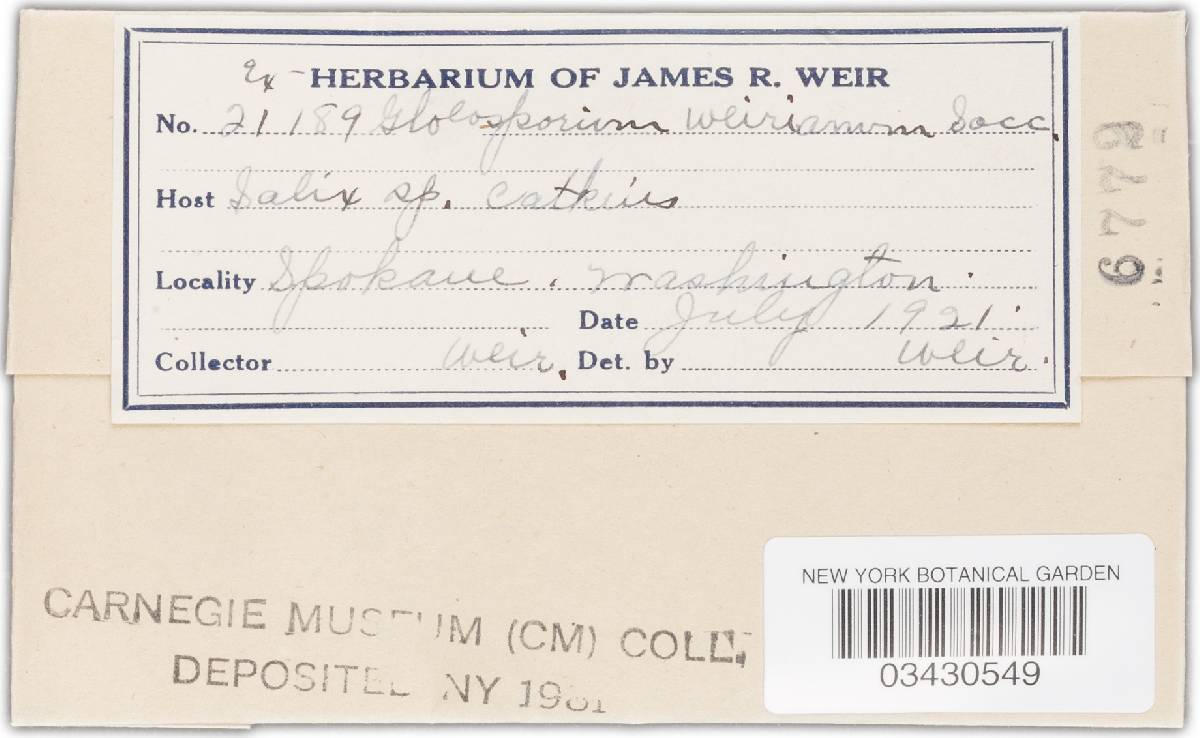 Ex - HERBARIUM OF JAMES R. WEIR
No. 21189 Gloeosporium Weirianum Sacc.
Host Salix sp. catkins
Locality Spokane, Washington.
Date July 1921.
Collector Weir. Det. by Weir.
6779
CARNEGIE MUSEUM (CM) COLL.
DEPOSITED NY 1981
NEW YORK BOTANICAL GARDEN
03430549